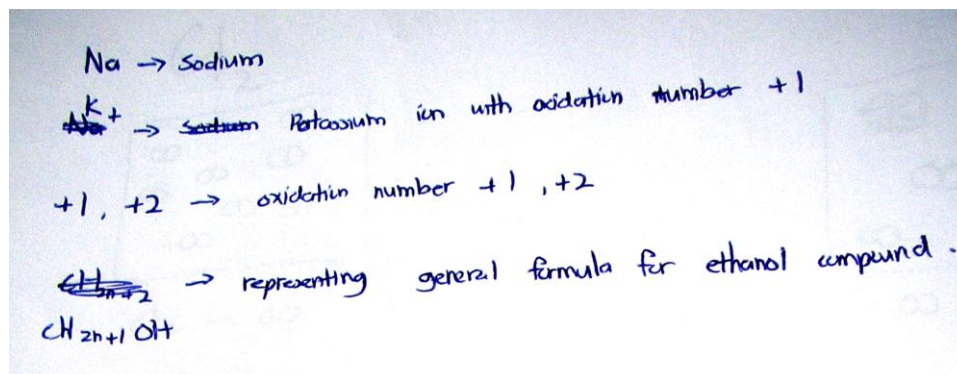 Na → Sodium
K+ → Potassium ion with oxidation number +1
+1, +2 → oxidation number +1, +2
→ representing general formula for ethanol compound.
CH2n+1 OH